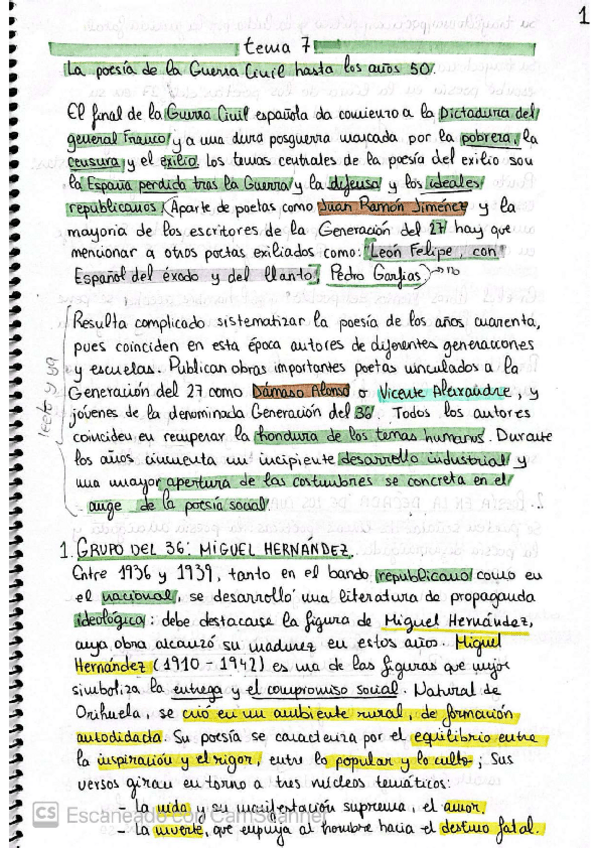 1
tema 7
La poesía de la Guerra Civil hasta los años 50.
El final de la Guerra Civil española da comienzo a la Dictadura del
general Franco y a una dura posguerra marcada por la pobreza, la
censura y el exilio. Los temas centrales de la poesía del exilio son
la España perdida tras la Guerra y la defensa y los ideales
republicanos (Aparte de poetas como Juan Ramón Jiménez y la
mayoría de los escritores de la Generación del 27 hay que
mencionar a otros poetas exiliados como: León Felipe, con
Español del éxodo y del llanto, Pedro Garfias → no
leerlo y ya
Resulta complicado sistematizar la poesía de los años cuarenta,
pues coinciden en esta época autores de diferentes generaciones
y escuelas. Publican obras importantes poetas vinculados a la
Generación del 27 como Dámaso Alonso o Vicente Aleixandre, y
jóvenes de la denominada Generación del 36. Todos los autores
coinciden en recuperar la hondura de los temas humanos. Durante
los años cincuenta un incipiente desarrollo industrial y
una mayor apertura de las costumbres se concreta en el
auge de la poesía social.
1. GRUPO DEL 36: MIGUEL HERNÁNDEZ.
Entre 1936 y 1939, tanto en el bando republicano como en
el nacional, se desarrolló una literatura de propaganda
ideológica: debe destacarse la figura de Miguel Hernández,
cuya obra alcanzó su madurez en estos años. Miguel
Hernández (1910 - 1942) es una de las figuras que mejor
simboliza la entrega y el compromiso social. Natural de
Orihuela, se crió en un ambiente rural, de formación
autodidacta. Su poesía se caracteriza por el equilibrio entre
la inspiración y el rigor, entre lo popular y lo culto; Sus
versos giran en torno a tres núcleos temáticos:
- La vida y su manifestación suprema, el amor.
- La muerte, que empuja al hombre hacia el destino fatal.
CS Escaneado con CamScanner